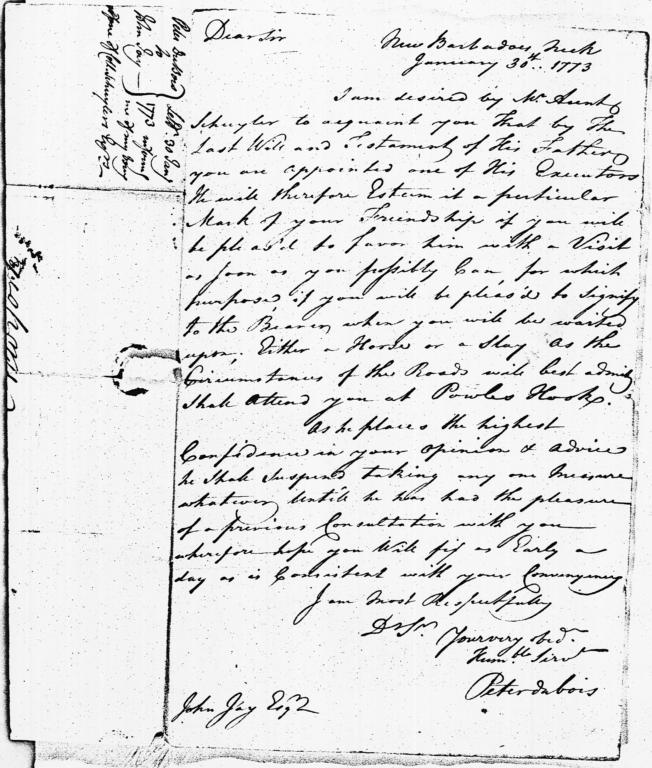 Dear Sir
New Barbadoes Neck
January 30th. 1773
I am desired by Mr. Arent
Schuyler to acquaint you that by the
Last Will and Testament of His Father
you are appointed one of His Executors
He will therefore Esteem it a particular
Mark of your Friendship if you will
be pleas'd to favor him with a Visit
as soon as you possibly Can, for which
purpose, if you will be pleas'd to signify
to the Bearer, when you will be waited
upon; Either a Horse or a Slay as the
Circumstances of the Roads will best admit,
shall attend you at Powles Hook.
As he places the highest
Confidence in your opinion & advice
he shall suspend taking any one measure
whatever untill he has had the pleasure
of a previous Consultation with you
wherefore hope you Will fix as Early a
day as is Consistent with your Conveniency
I am most Respectfully
Dr Sr.
Your very obed.
Humble Servt
Peter dubois
John Jay Esqr
Peter Dubois
to
John Jay
30 Jany
1773